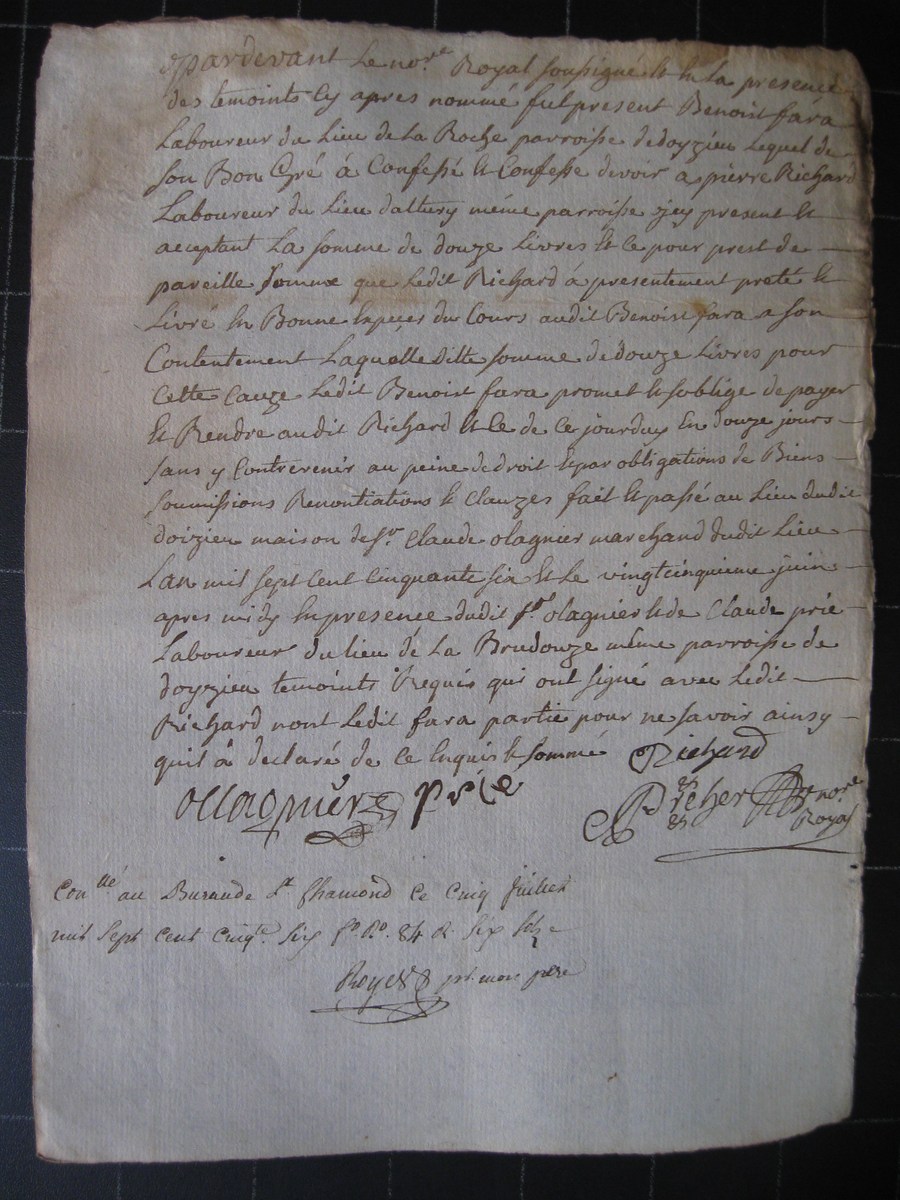 pardevant Le nore Royal soussigné Et En La presence
des temoints Cy apres nommé fut present Benoist fara
Laboureur du Lieu de La Roche parroisse de doyzieu Lequel de
son Bon Gré á Confessé Et Confesse devoir a pierre Richard
Laboureur du Lieu même parroisse jcy present Et
acceptant La somme de douze Livres Et Ce pour prest de
pareille somme que Ledit Richard á presentement preté Et
Livré En Bonne Especes du Cours audit Benoist fara a son
Contentement Laquelle ditte somme de douze Livres pour
Cette Cauze Ledit Benoist fara promet Et soblige de payer
Et Rendre audit Richard Et Ce de Ce jourduy En douze jours
sans y Contrevenir au peine de droit Et par obligations de Biens
soumissions Renontiations Et Clauzes fait Et passé au Lieu dudit
doizieu maison de sr Claude olagnier marchand dudit Lieu
Lan mil sept Cent Cinquante six Et Le vingtcinquieme juin
apres midy En presence dudit sr olagnier Et de Claude prie
Laboureur du lieu de La Brudouze même parroisse de
doyzieu temoints Requis qui ont signé avec Ledit
Richard non Ledit fara partie pour ne savoir ainsy
quil á declaré de Ce Enquis Et sommé Richard
ollagniere prie nore
Royal
Conllé au Bureau de St Chamond Ce Cinq Juillet
mil Sept Cent Cinqte Six fo Ro 84 R Six
Royer